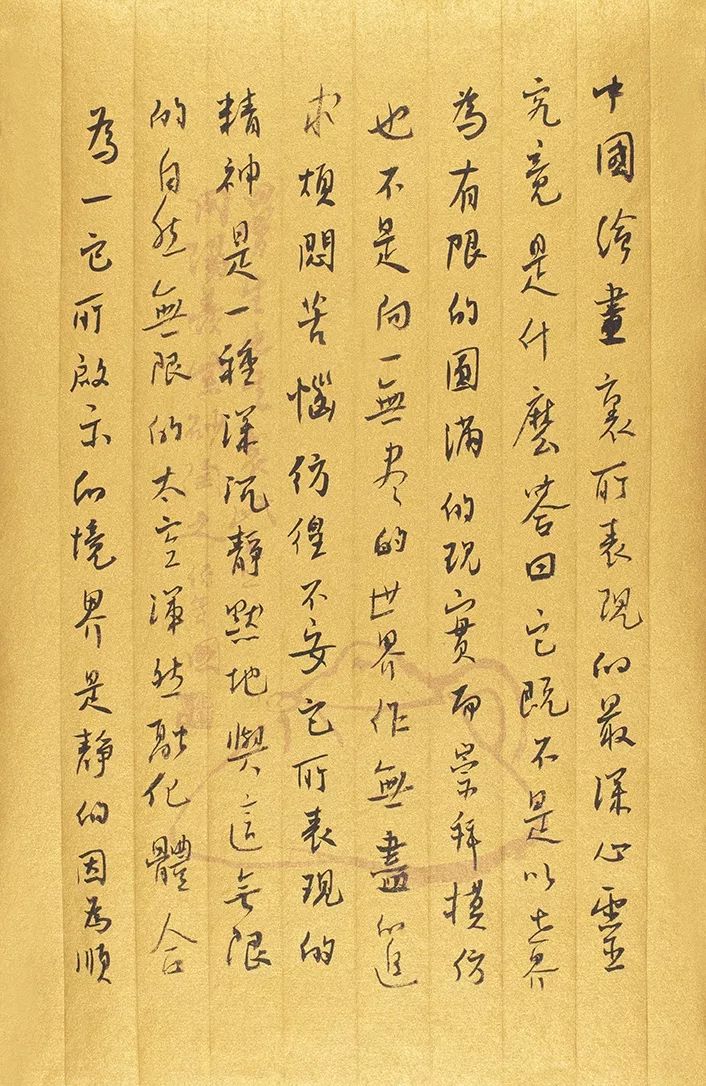 中國繪畫裏所表現的最深心靈
究竟是什麼答曰它既不是以世界
為有限的圓滿的現實而崇拜模仿
也不是向一無盡的世界作無盡的追
求煩悶苦惱彷徨不安它所表現的
精神是一種深沉靜默地與這無限
的自然無限的太空渾然融化體合
為一它所啟示的境界是靜的因為順